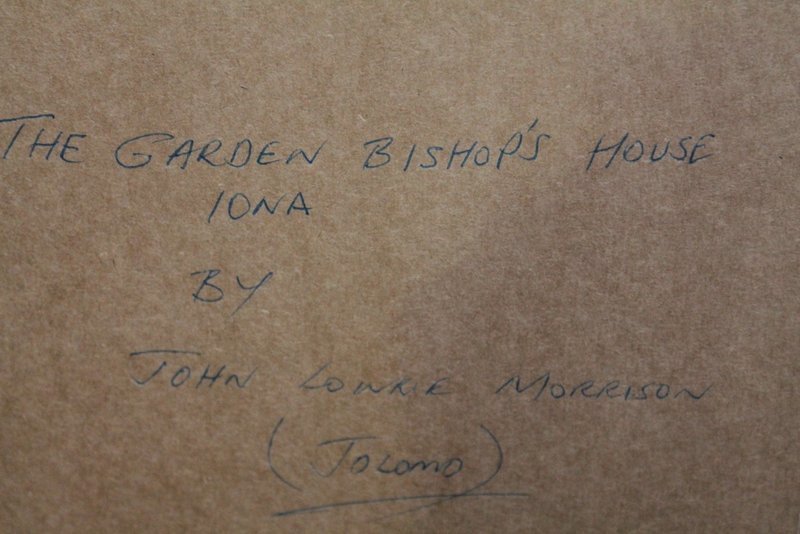 THE GARDEN BISHOP'S HOUSE
IONA
BY
JOHN LOWKIE MORRISON
(JOLOMO)